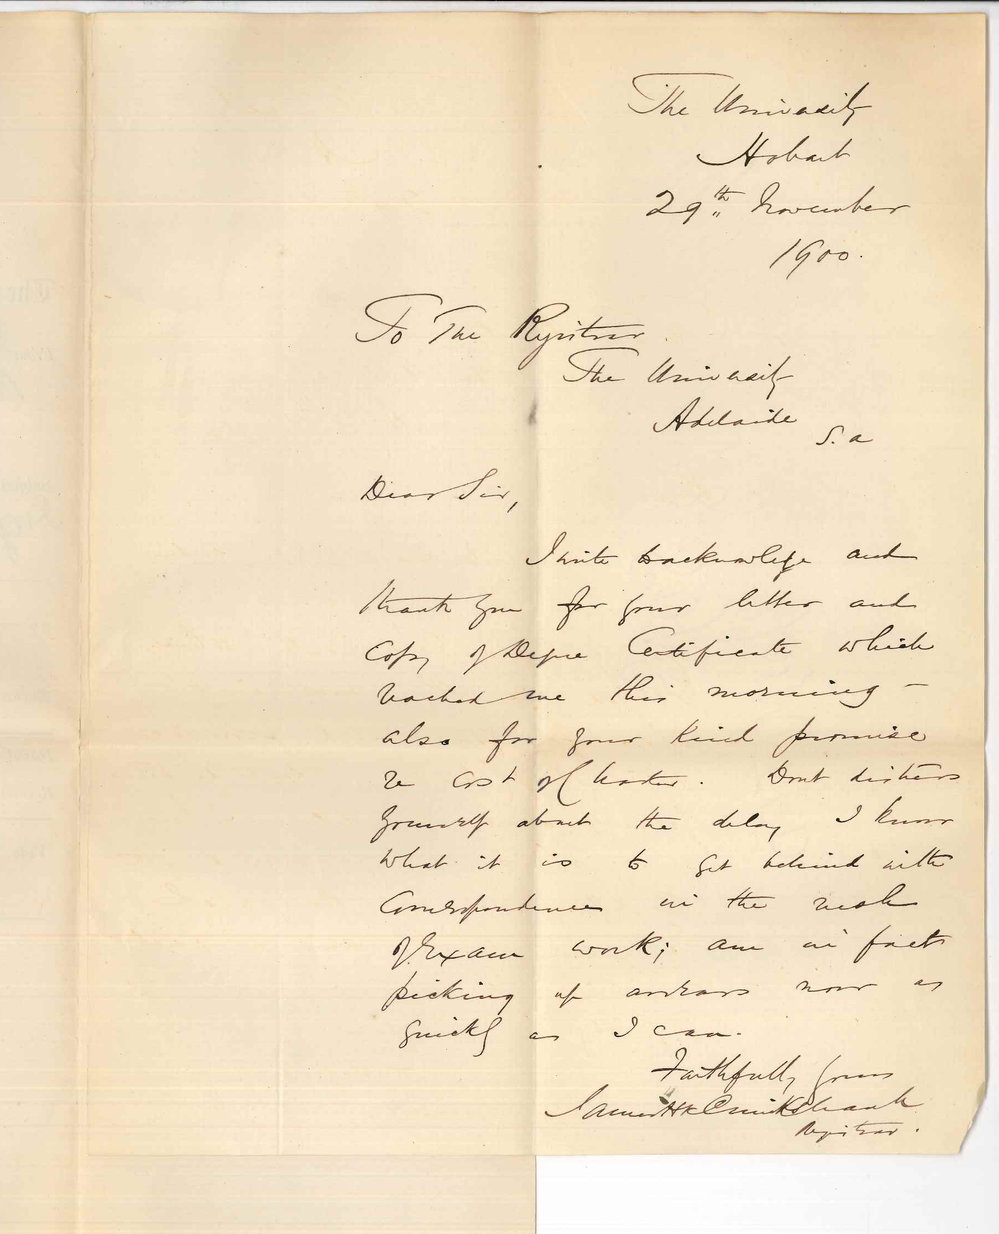 The University
Hobart
29th November
1900.
To The Registrar
The University
Adelaide
S. a
Dear Sir,
I write to acknowledge and
thank you for your letter and
copy of Degree Certificate which
reached me this morning –
also for your kind promise
re cost of Charter. Dont distress
yourself about the delay I know
what it is to get behind with
correspondence in the rush
of Exam work; am in fact
picking up arrears now as
quickly as I can.
Faithfully yours
James HK Cruickshank
Registrar.